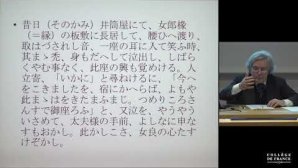 • 昔日（そのかみ）井筒屋にて、女郎椽
（＝縁）の板敷に長居して、腰ひへ渡り、
取はづされし音、一座の耳に入て笑ふ時、
其まゝ禿、身もだへして泣出し、しばら
くやむ事なく、此座の興も覚めける、人
立寄、「いかに」と尋ねけるに、「今へ
をこきましたを、宿にかへらば、よもや
此まゝはをきたまふまじ。つめりころさ
んすで御座ろふ」と、又泣を、やうやう
いさめて、太夫様の手前、よしなに申な
すもおかし。此かしこさ、女良の心たす
けぞかし。
COLLÈGE
DE FRANCE